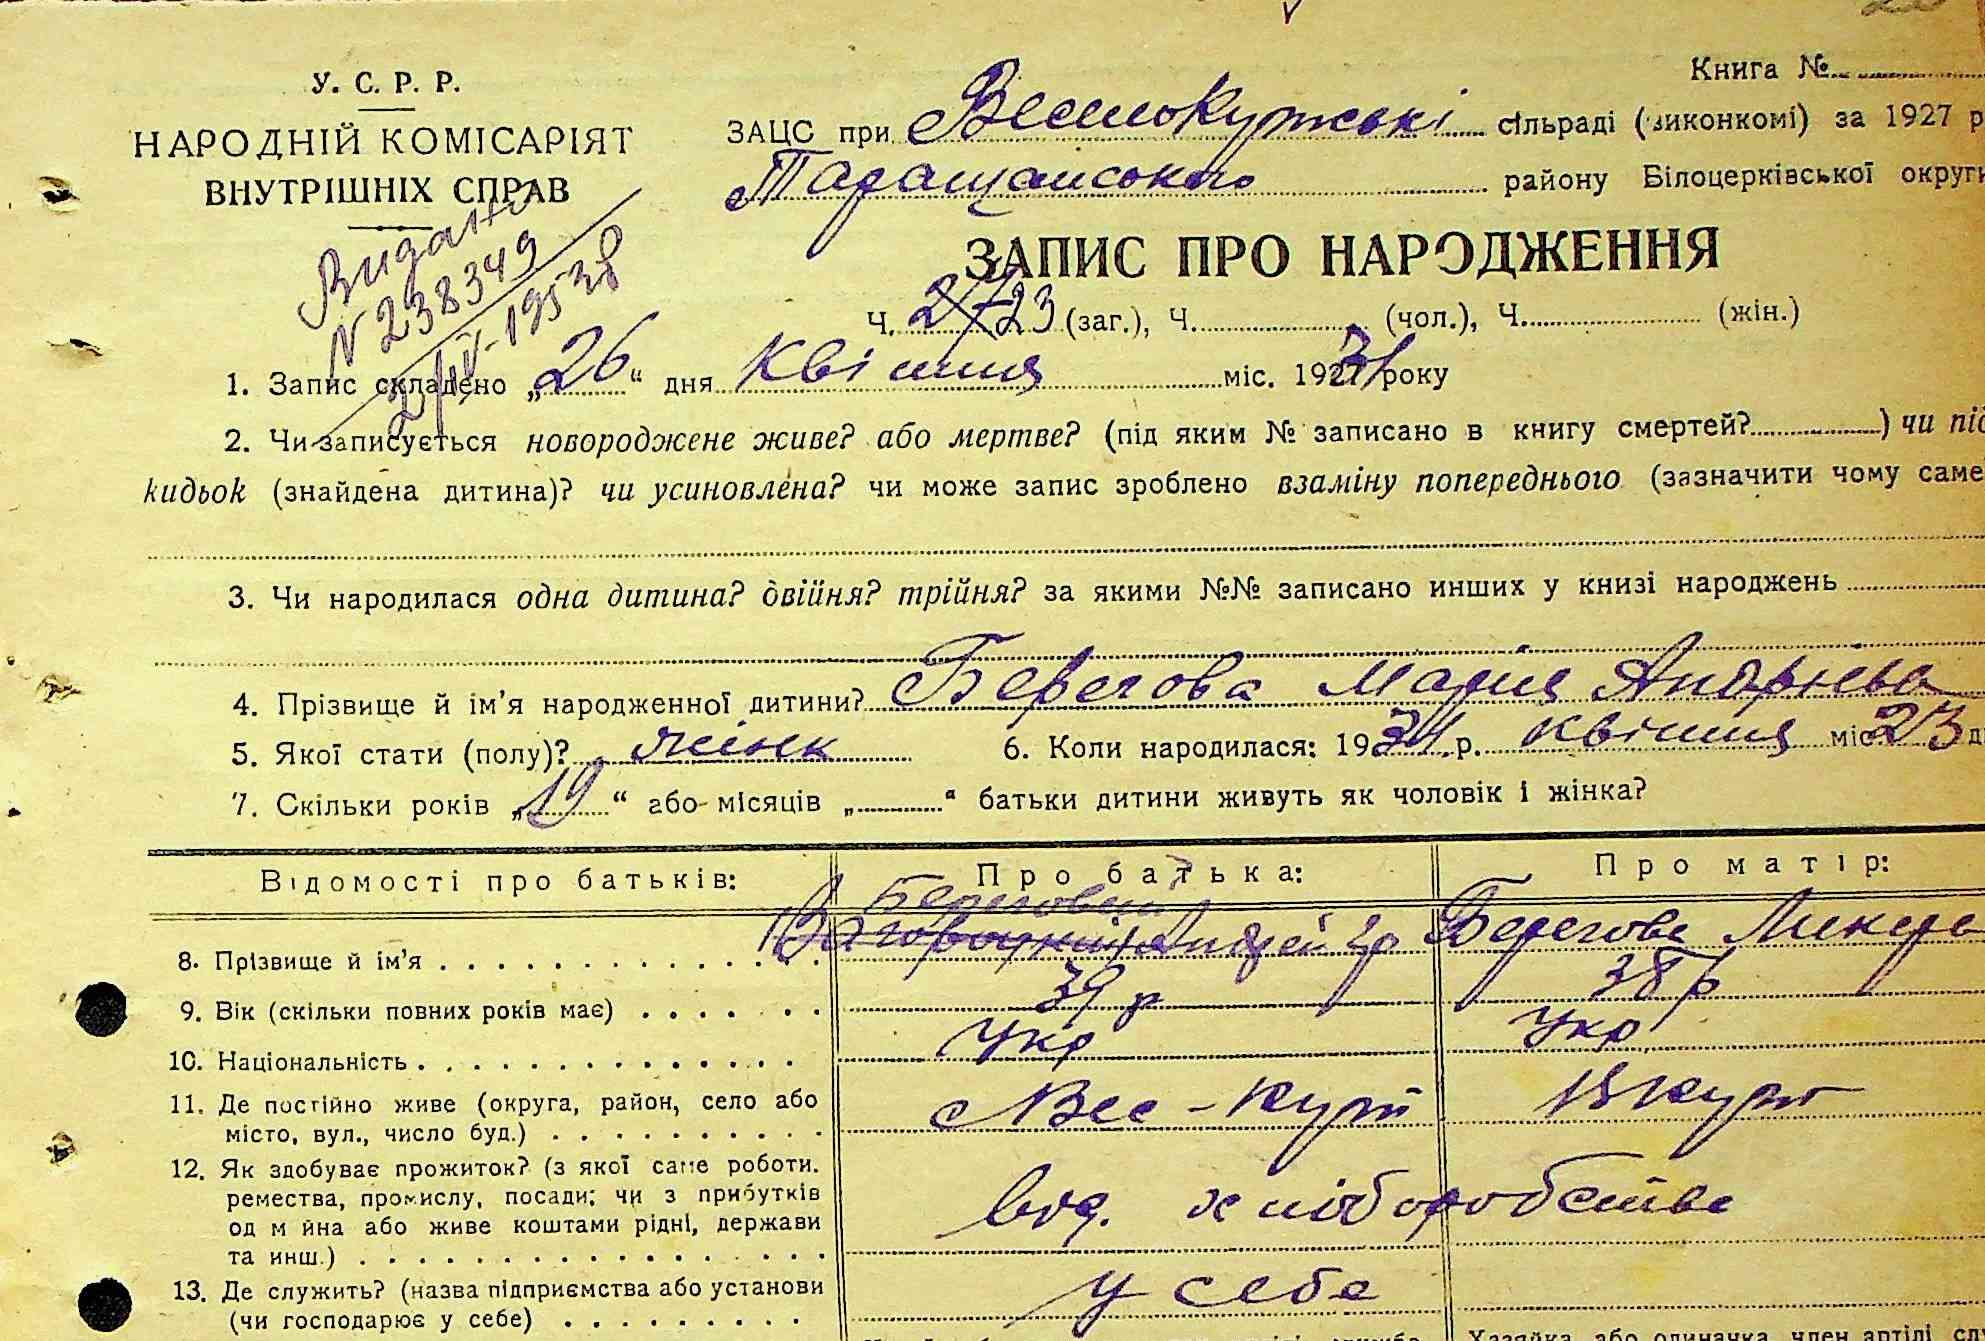 У. С. Р. Р.
НАРОДНІЙ КОМІСАРІЯТ
ВНУТРІШНІХ СПРАВ
Книга №
ЗАЦС при Веселокутські сільраді (виконкомі) за 1927 р
Таращанського району Білоцерківської округи
N 238349
ЗАПИС ПРО НАРОДЖЕННЯ
Ч. 27 23 (заг.), Ч. (чол.), Ч. (жін.)
1. Запис складено „26“ дня Квітня міс. 1927 31 року
2. Чи записується новороджене живе? або мертве? (під яким № записано в книгу смертей? ) чи під
кидьок (знайдена дитина)? чи усиновлена? чи може запис зроблено взаміну попереднього (зазначити чому саме
3. Чи народилася одна дитина? двійня? трійня? за якими №№ записано инших у книзі народжень
4. Прізвище й ім'я народженної дитини? Берегова Марія Андрієва
5. Якої стати (полу)? жінк 6. Коли народилася: 1931 р. квітня міс 23 д
7. Скільки років „19“ або місяців „ “ батьки дитини живуть як чоловік і жінка?
Відомості про батьків: Про батька: Про матір:
Береговий
8. Прізвище й ім'я Андрей Берегова
9. Вік (скільки повних років має) 39 р 38 р
10. Національність Укр Укр
11. Де постійно живе (округа, район, село або
місто, вул., число буд.) с Вес-Кут В Кут
12. Як здобуває прожиток? (з якої саме роботи.
ремества, промислу, посади; чи з прибутків
од м йна або живе коштами рідні, держави
та инш.) від. хліборобства
13. Де служить? (назва підприємства або установи
(чи господарює у себе) у себе
Хазяйка, або одиначка, член артілі